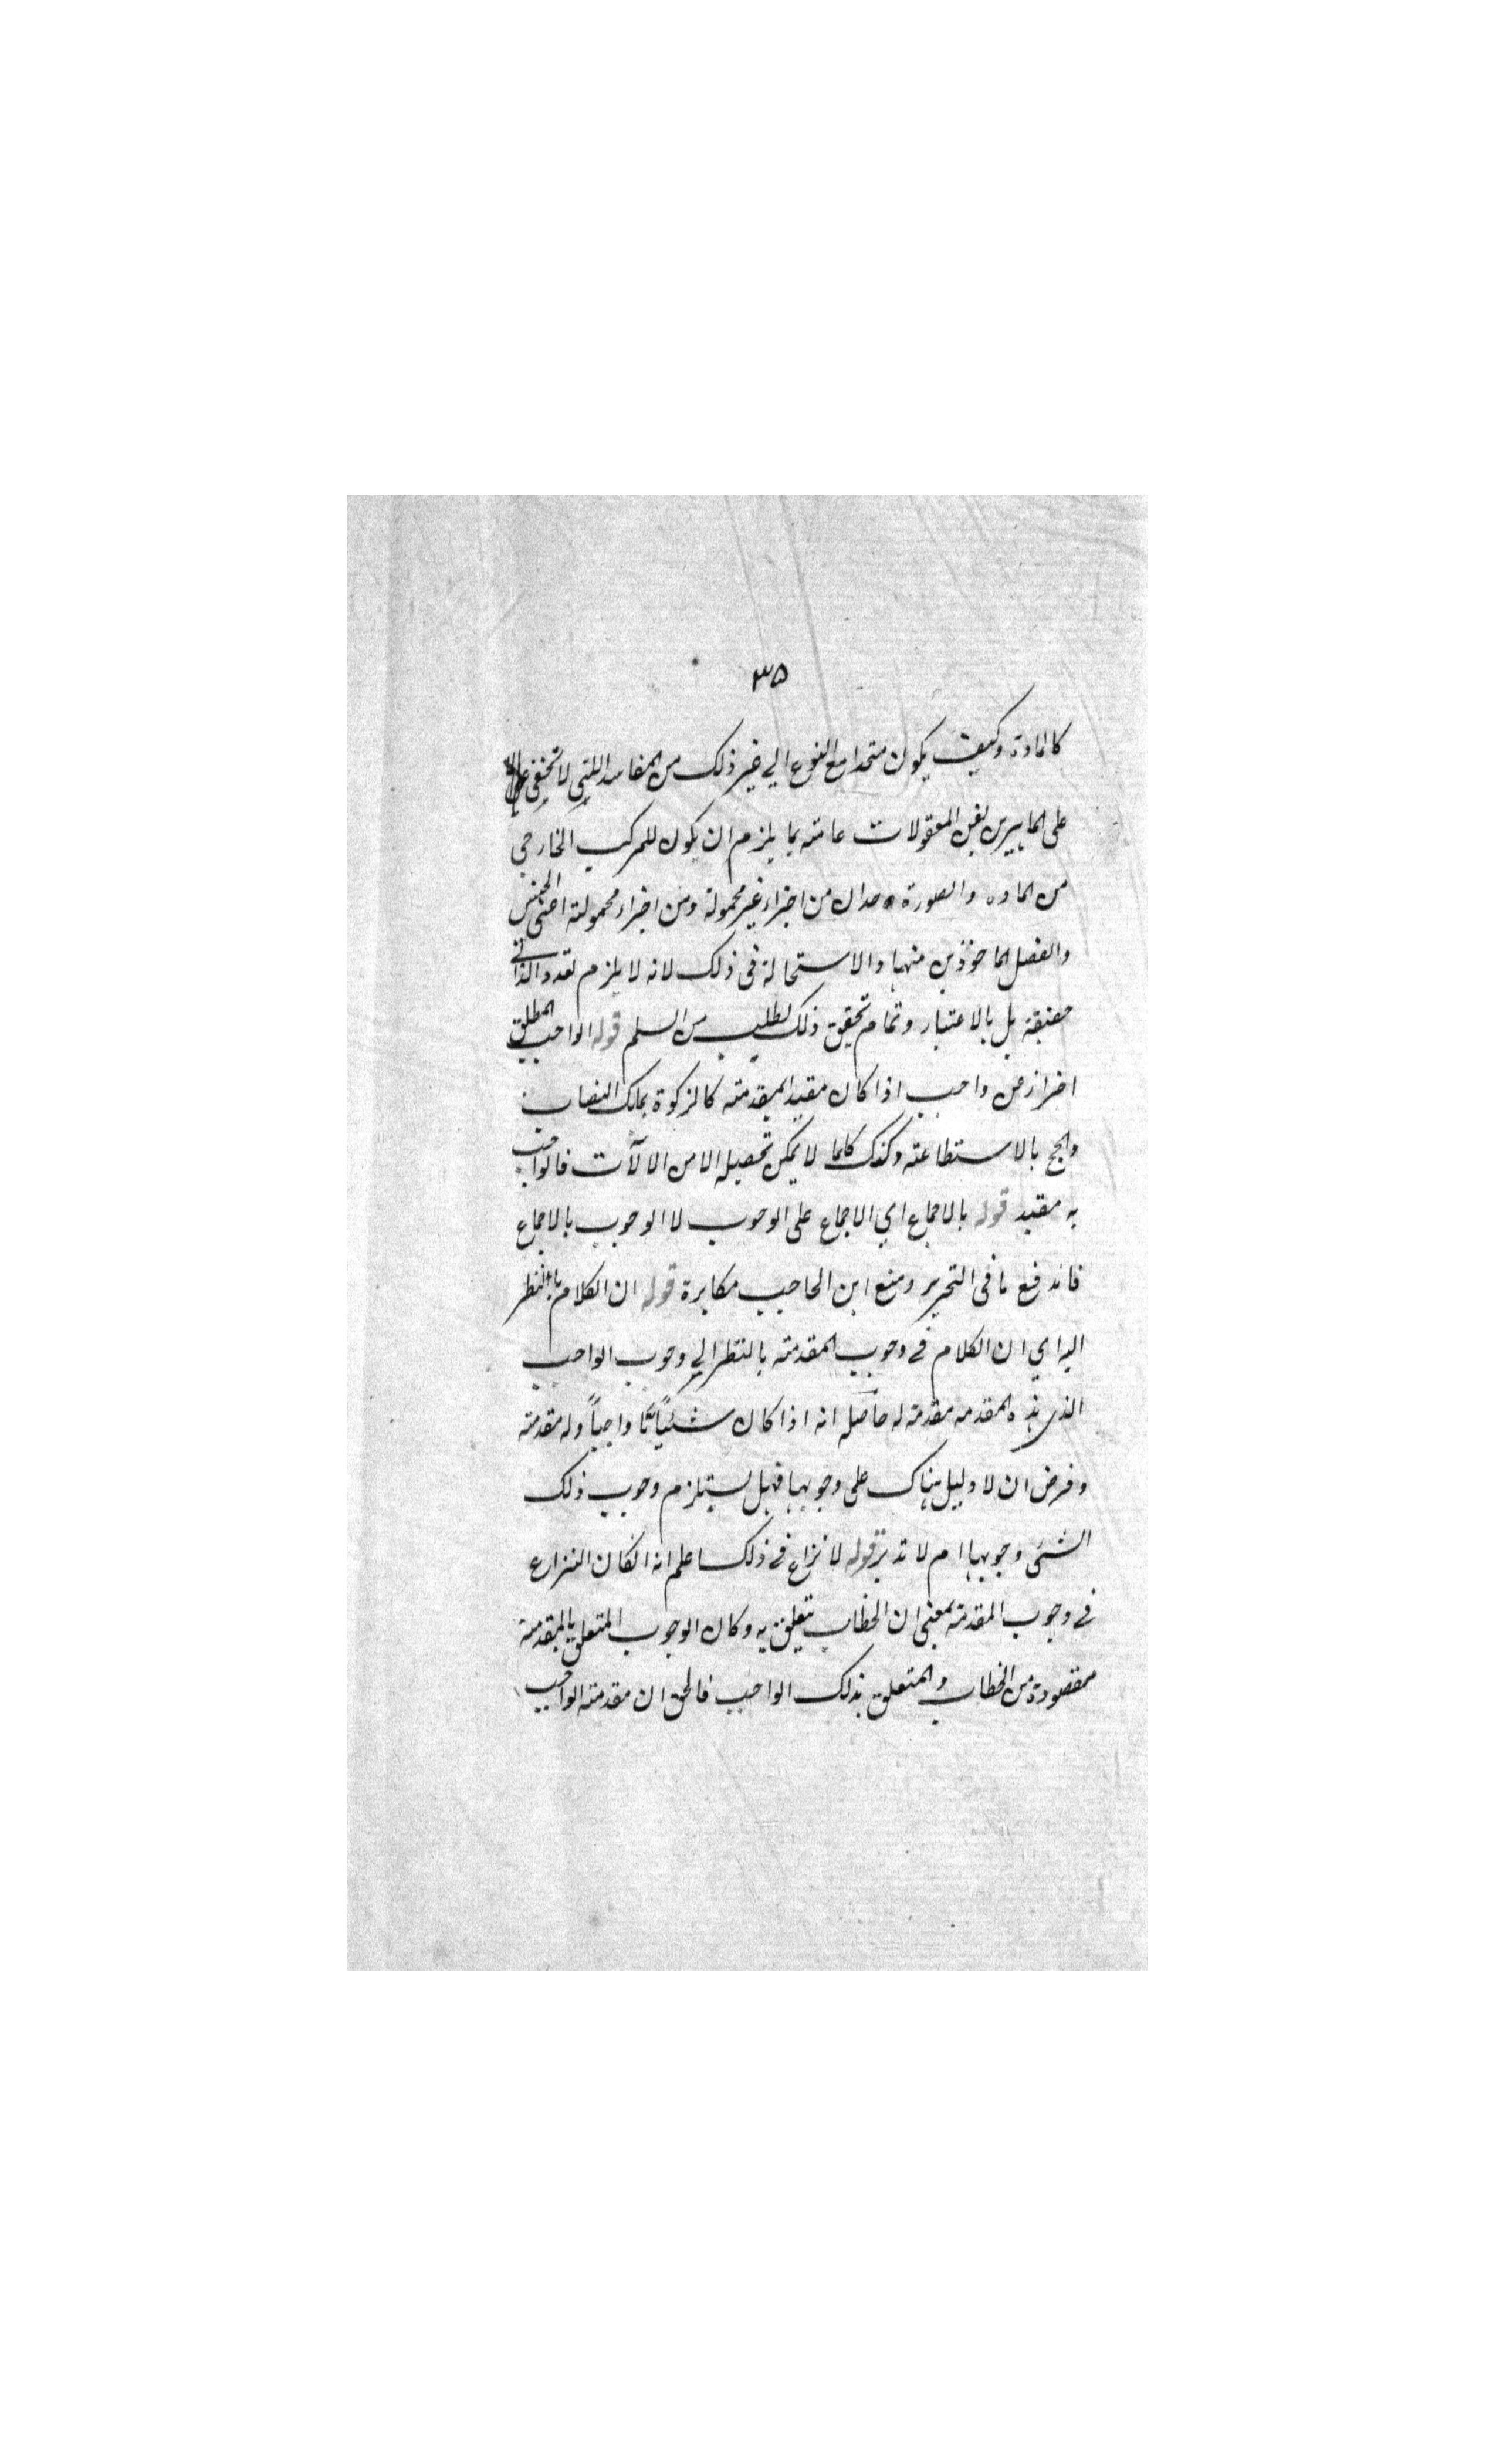 ۳۵
كالمادة وكيف يكون متحدا مع النوع الي غير ذلك من المفاسد اللتي لا تخفى
على الماهرين بفن المعقولات عامته بما يلزم ان يكون للمركب الخارجي
من الماده والصورة حدان من اجزاء غير محمولة ومن اجزاء محمولته اعنى الجنس
والفصل الماخوذين منهما والاستحالة فى ذلك لانه لا يلزم تعدد الذاتي
حقيقة بل بالاعتبار وتمام تحقيق ذلك يطلب من السلم قوله الواجب المطلق
احتراز عن واجب اذا كان مقيدا بمقدمته كالزكوة بملك النصاب
والحج بالاستطاعته وكذلك كلما لا يمكن تحصيله الا من الالآت فالواجب
به مقيد قوله بالاجماع اي الاجماع على الوجوب لا الوجوب بالاجماع
فاندفع ما فى التحرير ومنع ابن الحاجب مكابرة قوله ان الكلام بالنظر
اليه اي ان الكلام فے وجوب المقدمته بالنظر الي وجوب الواجب
الذى هذه المقدمه مقدمة له حاصله انه اذا كان شئيًا مّا واجباً وله مقدمته
وفرض ان لا دليل هناك على وجوبها فهل يستلزم وجوب ذلك
الشئى وجوبها ام لا تدبر قوله لا نزاع فے ذلك اعلم انه انكان النزاع
فے وجوب المقدمة بمعنى ان الخطاب يتعلق به وكان الوجوب المتعلق بالمقدمة
مقصودة من الخطاب والمتعلق بذلك الواجب فالحق ان مقدمته الواجب